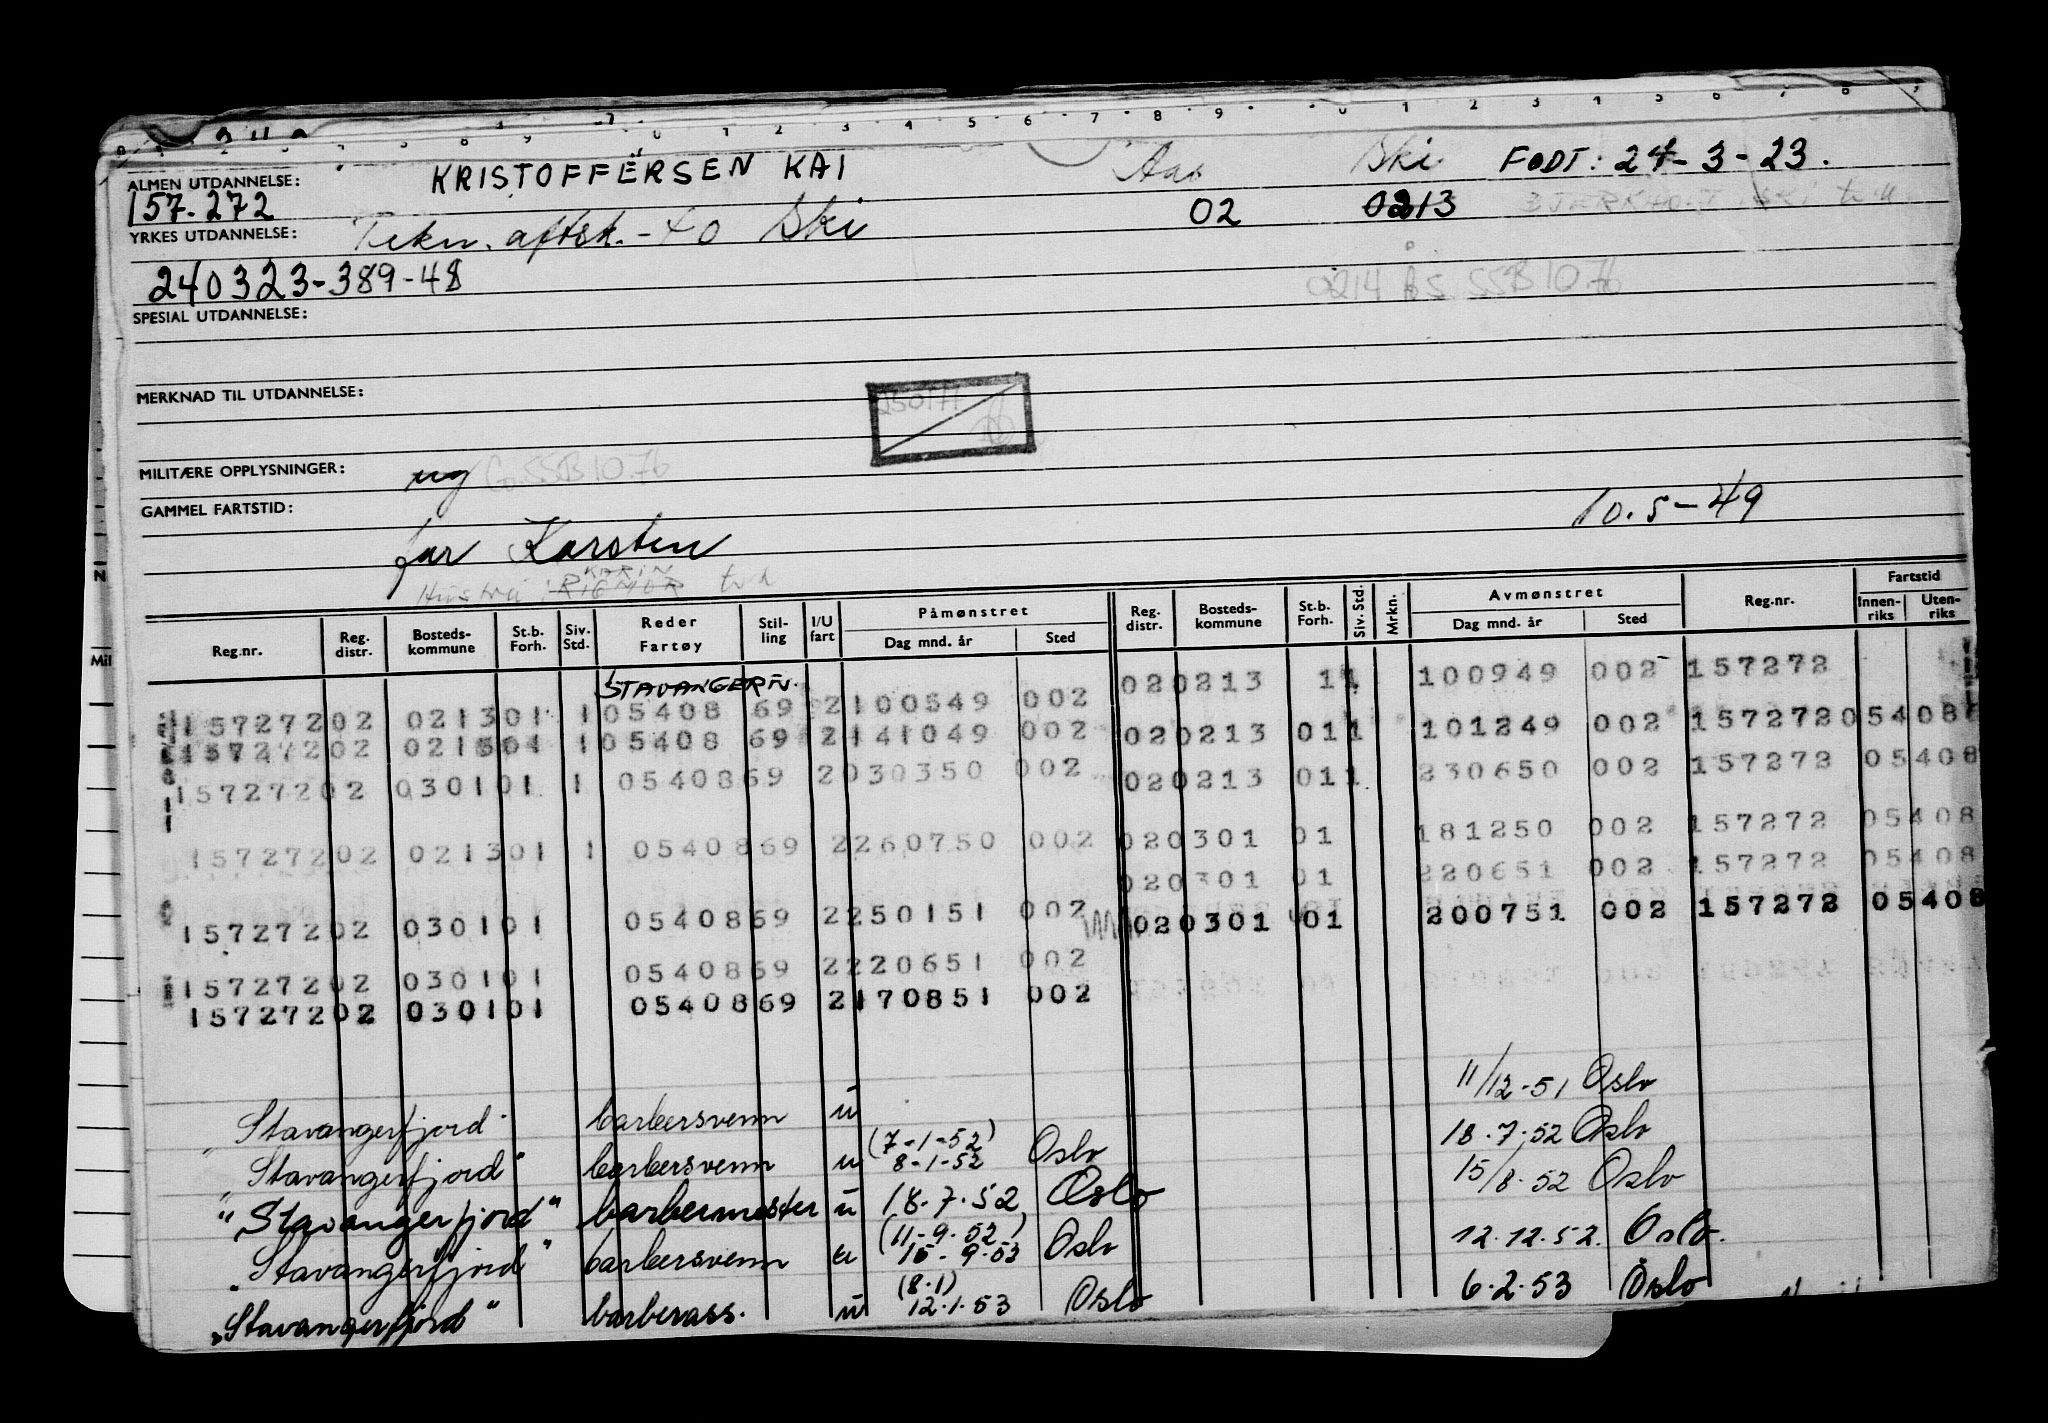 ALMEN UTDANNELSE: KRISTOFFERSEN KAI Aas Ski FØDT: 24-3-23.
157.272 02 0213
YRKES UTDANNELSE: Tekn. aftsk. -40 Ski
240323-389-48 0214 Ås SSB 10.76
SPESIAL UTDANNELSE:
MERKNAD TIL UTDANNELSE:
250171
MILITÆRE OPPLYSNINGER: ug SSB 10.76
GAMMEL FARTSTID: 10.5-49
far Karsten
KARIN
Hustru: RIGMOR
Reg.nr. Reg. distr. Bosteds-kommune St.b. Forh. Siv. Std. Reder Fartøy Stil-ling I/U fart Påmønstret Dag mnd. år Sted Reg. distr. Bosteds-kommune St.b. Forh. Siv. Std. Mrkn. Avmønstret Dag mnd. år Sted Reg.nr. Fartstid Innen-riks Uten-riks
STAVANGERFJ.
15727202 021301 1 05408 69 2100549 002 020213 11 100949 002 157272
15727202 021301 1 05408 69 2141049 002 020213 011 101249 002 157272 05408
15727202 030101 1 0540869 2030350 002 020213 011 230650 002 157272 05408
15727202 021301 1 0540869 2260750 002 020301 01 181250 002 157272 05408
020301 01 220651 002 157272 05408
15727202 030101 0540869 2250151 002 020301 01 200751 002 157272 05408
15727202 030101 0540869 2220651 002
15727202 030101 0540869 2170851 002
"Stavangerfjord" barbersvenn u 11/12-51 Oslo
"Stavangerfjord" barbersvenn u (7-1-52) 8-1-52 Oslo 18.7.52 Oslo
"Stavangerfjord" barbermester u 18.7.52 Oslo 15/8.52 Oslo
"Stavangerfjord" barbersvenn u (11-9.52) 15-9.52 Oslo 12.12.52. Oslo.
"Stavangerfjord" barberass. u (8.1) 12.1.53 Oslo 6.2.53 Oslo